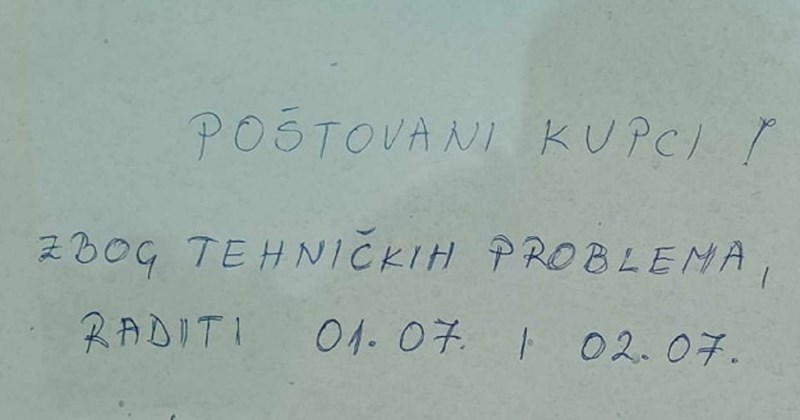 POŠTOVANI KUPCI !
ZBOG TEHNIČKIH PROBLEMA,
RADITI 01.07. I 02.07.